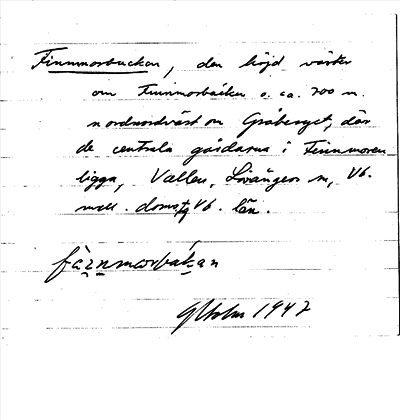 Finnmorbacken, den höjd väster
om Finnmorbäcken o. ca. 700 m.
nordnordväst om Gråberget, där
de centrala gårdarna i Finnmoren
ligga, Vallen, Lövångers sn, Vb.
mell. doms. Vb. län.
GHolm 1947